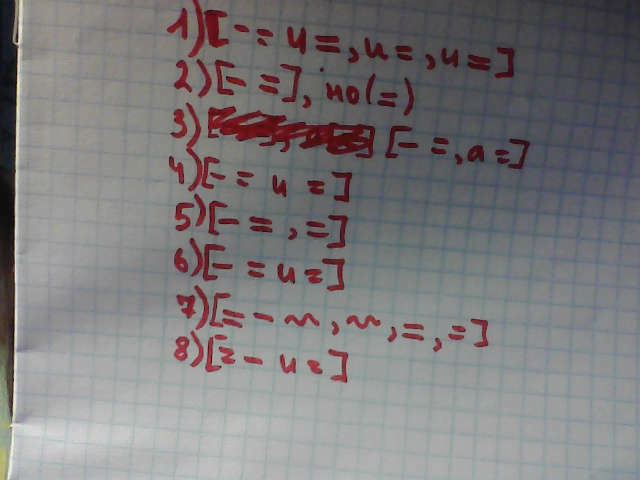 1) [- = и =, и =, и =]
2) [- =], но (=)
3) [- =, а =]
4) [- = и =]
5) [- =, =]
6) [- = и =]
7) [= - ~, ~, =, =]
8) [= - и =]